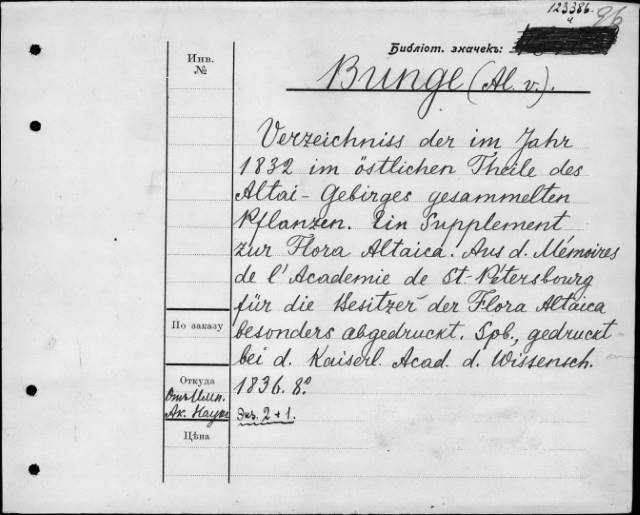 123386.
4
96
Библіот. значекъ:
Инв.
№
Bunge (Al. v.).
Verzeichniss der im Jahr
1832 im östlichen Theile des
Altai-Gebirges gesammelten
Pflanzen. Ein Supplement
zur Flora Altaica. Aus d. Mémoires
de l'Academie de St. Pétersbourg
für die Besitzer der Flora Altaica
По заказу
besonders abgedruckt. Spb., gedruckt
bei d. Kaiserl. Acad. d. Wissensch.
Откуда
1836. 8º.
Отъ Имп.
Ак. Наукъ
Экз. 2 + 1.
Цѣна